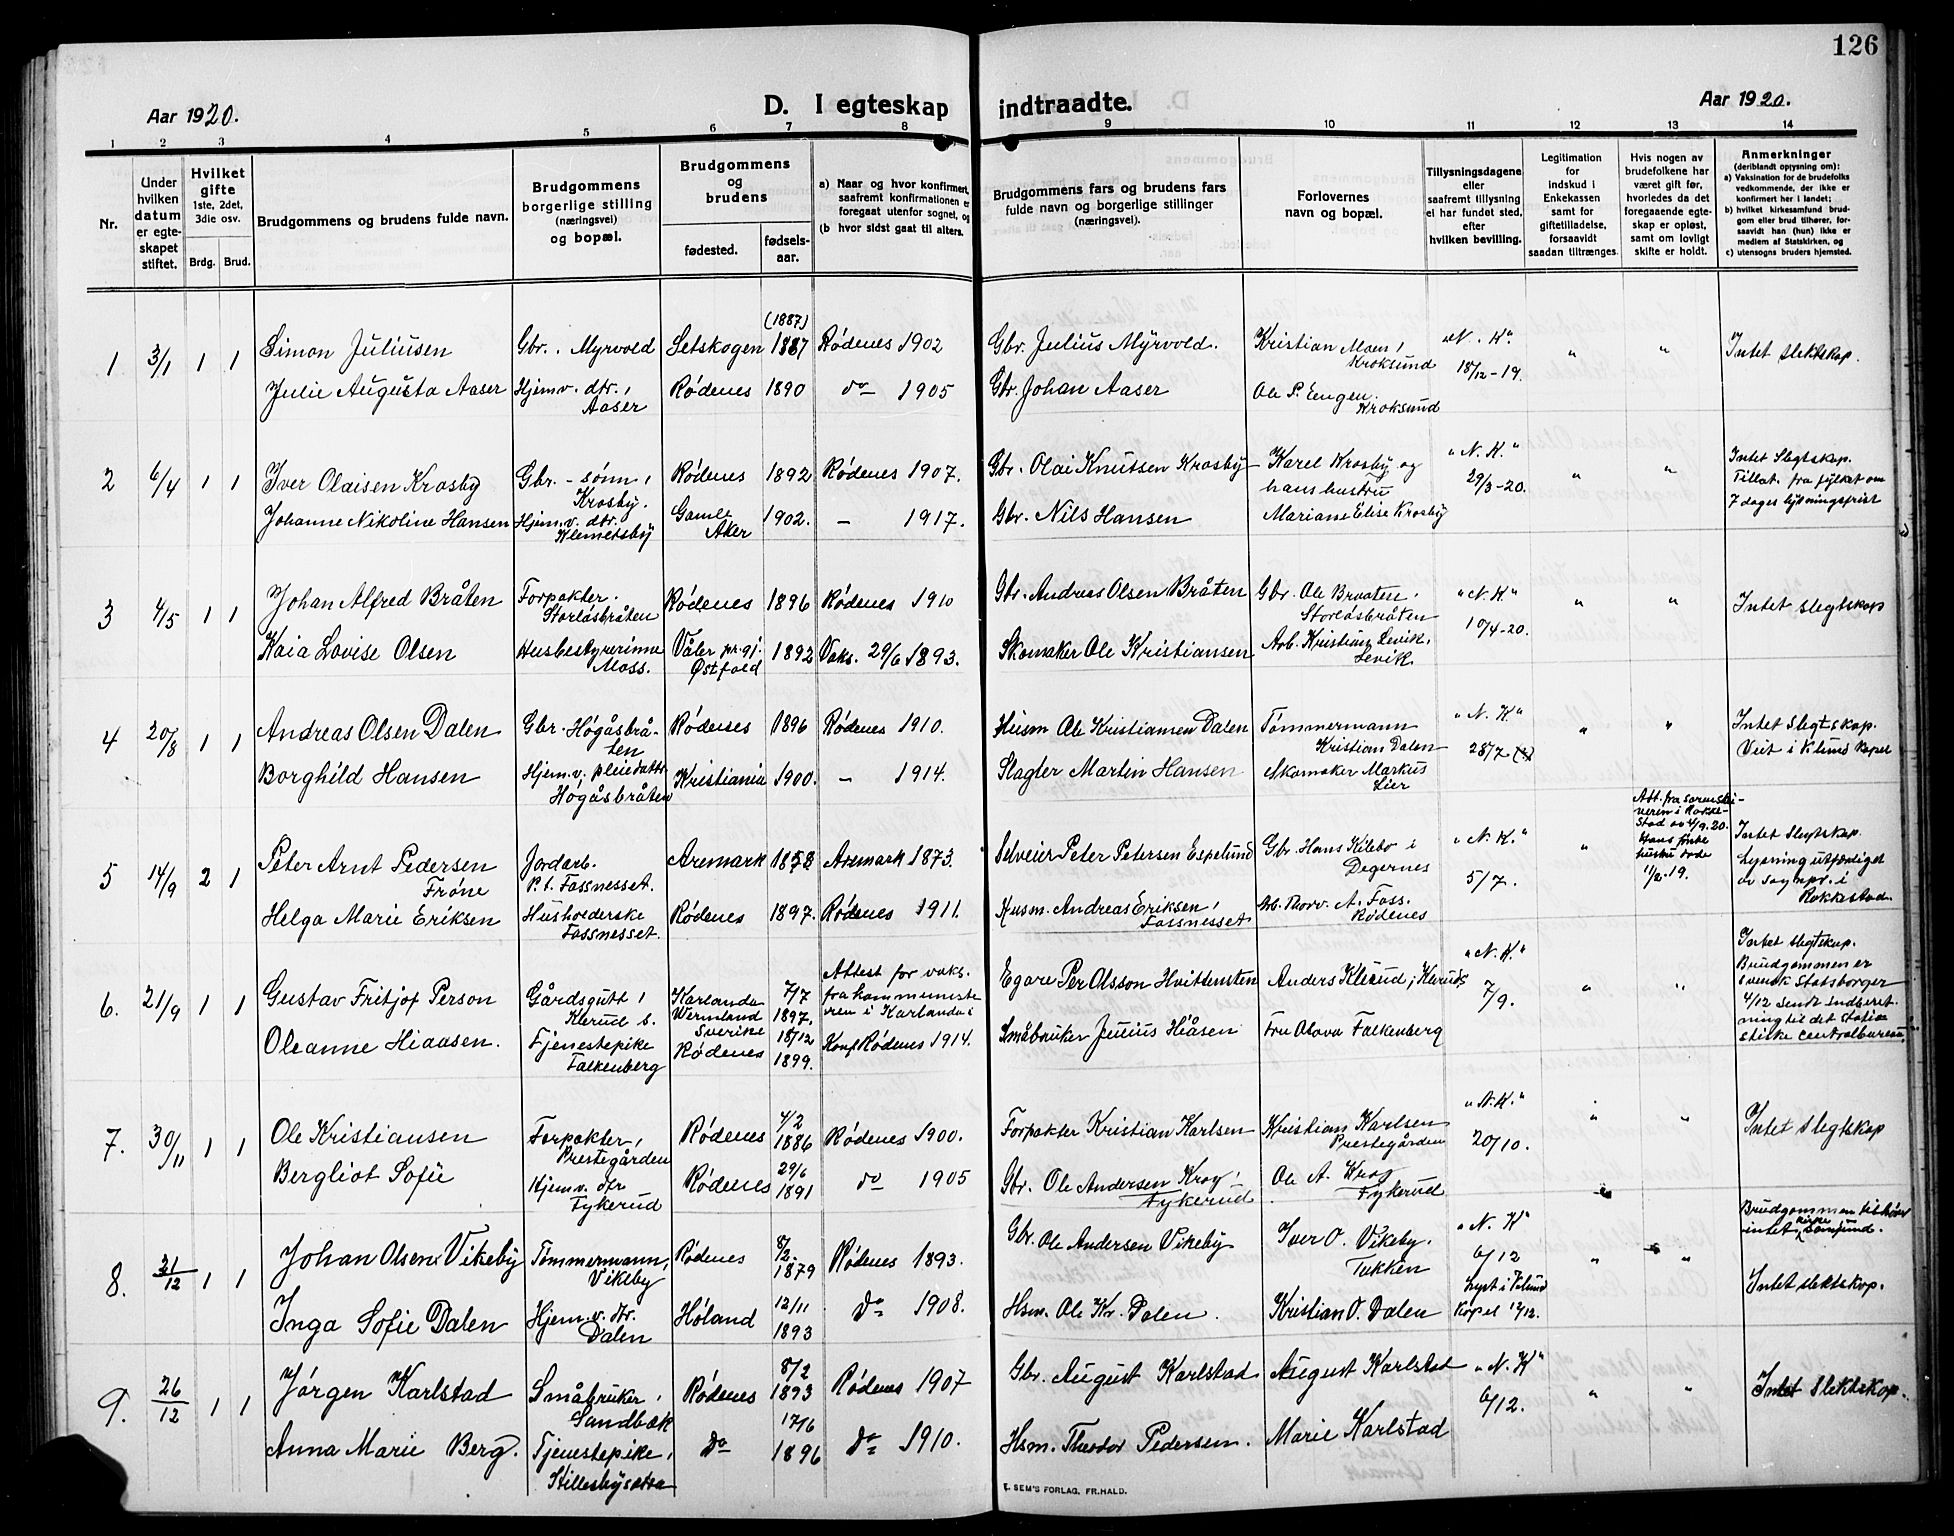 126
Aar 1920.
D. I egteskap indtraadte.
Aar 1920.
1 2 3 4 5 6 7 8 9 10 11 12 13 14
Nr.
Under hvilken datum er egteskapet stiftet.
Hvilket gifte 1ste, 2det, 3die osv.
Brdg. Brud.
Brudgommens og brudens fulde navn.
Brudgommens borgerlige stilling (næringsvei) og bopæl.
Brudgommens og brudens
fødested. fødselsaar.
a) Naar og hvor konfirmert, saafremt konfirmationen er foregaat utenfor sognet, og (b hvor sidst gaat til alters.
Brudgommens fars og brudens fars fulde navn og borgerlige stillinger (næringsvei).
Forlovernes navn og bopæl.
Tillysningsdagene eller saafremt tillysning ei har fundet sted, efter hvilken bevilling.
Legitimation for indskud i Enkekassen samt for giftetilladelse, forsaavidt saadan tiltrænges.
Hvis nogen av brudefolkene har været gift før, hvorledes da det foregaaende egteskap er opløst, samt om lovligt skifte er holdt.
Anmerkninger (deriblandt oppysning om): a) Vaksination for de brudefolks vedkommende, der ikke er konfirmert her i landet; b) hvilket kirkesamfund brudgom eller brud tilhører, forsaavidt han (hun) ikke er medlem af Statskirken, og c) utensogns bruders hjemsted.
1 3/1 1 1 Simon Juliusen Gbr., Myrvold Setskogen (1887) 1887 Rødenes 1902 Gbr. Julius Myrvold. Kristian Moen, Kroksund "N. K" 18/12-19. " " Intet slektskap.
Julie Augusta Aaser Hjemv. dtr., Aaser Rødenes 1890 do 1905 Gbr. Johan Aaser Ole P. Engen. Kroksund
2 6/4 1 1 Iver Olaisen Krosby Gbr.-sønn, Krosby. Rødenes 1892 Rødenes 1907. Gbr. Olai Knutsen Krosby Karel Krosby og hans hustru "N. K." 29/3-20. " " Intet Slegtskap. Tillat. fra fylket om 7 dages lysningsfrist
Johanne Nikoline Hansen Hjemv. dtr. Klemetsby Gamle Aker 1902. - 1917. Gbr. Nils Hansen Mariane Elise Krosby
3 4/5 1 1 Johan Alfred Bråten Forpakter. Storløsbråten Rødenes 1896 Rødenes 1910 Gbr. Andreas Olsen Bråten Gbr. Ole Braaten, Storløsbråten "N. K" 10/4-20. " " Intet slegtskap
Kaia Lovise Olsen Husbestyrerinne Moss. Våler pr.gj. Østfold 1892 Vaks. 29/6 1893. Skomaker Ole Kristiansen Arb. Kristian Levik, Levik.
4 20/8 1 1 Andreas Olsen Dalen Gbr. Høgåsbråten Rødenes 1896 Rødenes 1910. Husm Ole Kristiansen Dalen Tømmermann Kristian Dalen "N. K" 28/7 " " Intet Slegtskap. Viet i Klund Kapel
Borghild Hansen Hjem.v. pleiedattr Høgåsbråten Kristiania 1900. - 1914. Slagter Martin Hansen Skomaker Markus Lier
5 14/9 2 1 Peter Arnt Pedersen Frøne Jordarb. p.t. Fassnesset. Aremark 1858 Aremark 1873. Selveier Peter Petersen Espelund Gbr Hans Kilebo i Degernes "N. K." 5/7. " Att. fra sorenskriveren i Rakkestad av 4/9.20. Hans første hustru døde 11/2-19. Intet slegtskap. Lysning utfærdiget av sognpr. i Rakkestad.
Helga Marie Eriksen Husholderske Fassnesset. Rødenes 1897. Rødenes 1911. Husm. Andreas Eriksen, Fassnesset Arb. Thorv. A. Foss. Rødenes
6. 21/9 1 1 Gustav Fritjof Person Gårdsgutt, Klerud s. Karlanda Wermland Sverike 7/7 1897. Attest for vaks. fra kommunisteren i Karlanda Egare Per Olsson Hvittensten Anders Klerud, Klerud, "N. K" 7/9. " " Intet slegtskap. Brudgommen er svensk Statsborger 4/12 sendt indberetning til det statistiske centralbureau.
Oleanne Hiaasen. Tjenestepike Falkenberg Rødenes 18/12 1899. Konf Rødenes 1914. Småbruker Julius Hiåsen Fru Olava Falkenberg
7. 30/11 1 1 Ole Kristiansen Forpakter, Prestegården Rødenes 4/2 1886 Rødenes 1900. Forpakter Kristian Karlsen Kristian Karlsen Prestegården "N. K." 20/10. " " Intet Slegtskap
Bergliot Sofie Hjemv. dtr Tykerud Rødenes 29/6 1891 do 1905 Gbr. Ole Andersen Krog, Tykerud Ole A. Krog Tykerud
8. 21/12 1 1 Johan Olsen Vikeby Tømmermann, Vikeby Rødenes 8/2. 1879 Rødenes 1893. Gbr. Ole Andersen Vikeby Iver O. Vikeby. Tukken "N. K" 6/12 Lyst i Klund Kapel 12/12. " " Brudgommen tilhører intet kirkesamfund. Intet slektskap.
Inga Sofie Dalen Hjem.v. dtr. Dalen Høland 12/11 1893 do 1908. Hsm. Ole Kr. Dalen. Kristian O. Dalen
9. 26/12 1 1 Jørgen Karlstad Småbruker, Sandbæk Rødenes 8/2 1893 Rødenes 1907 Gbr. August Karlstad August Karlstad "N. K" 6/12. " " Intet Slektskap.
Anna Marie Berg. Tjenestepike, Killesbysætra do 17/6 1896 do 1910. Hsm. Theodor Pedersen. Marie Karlstad
E. SEM'S FORLAG, FR.HALD.